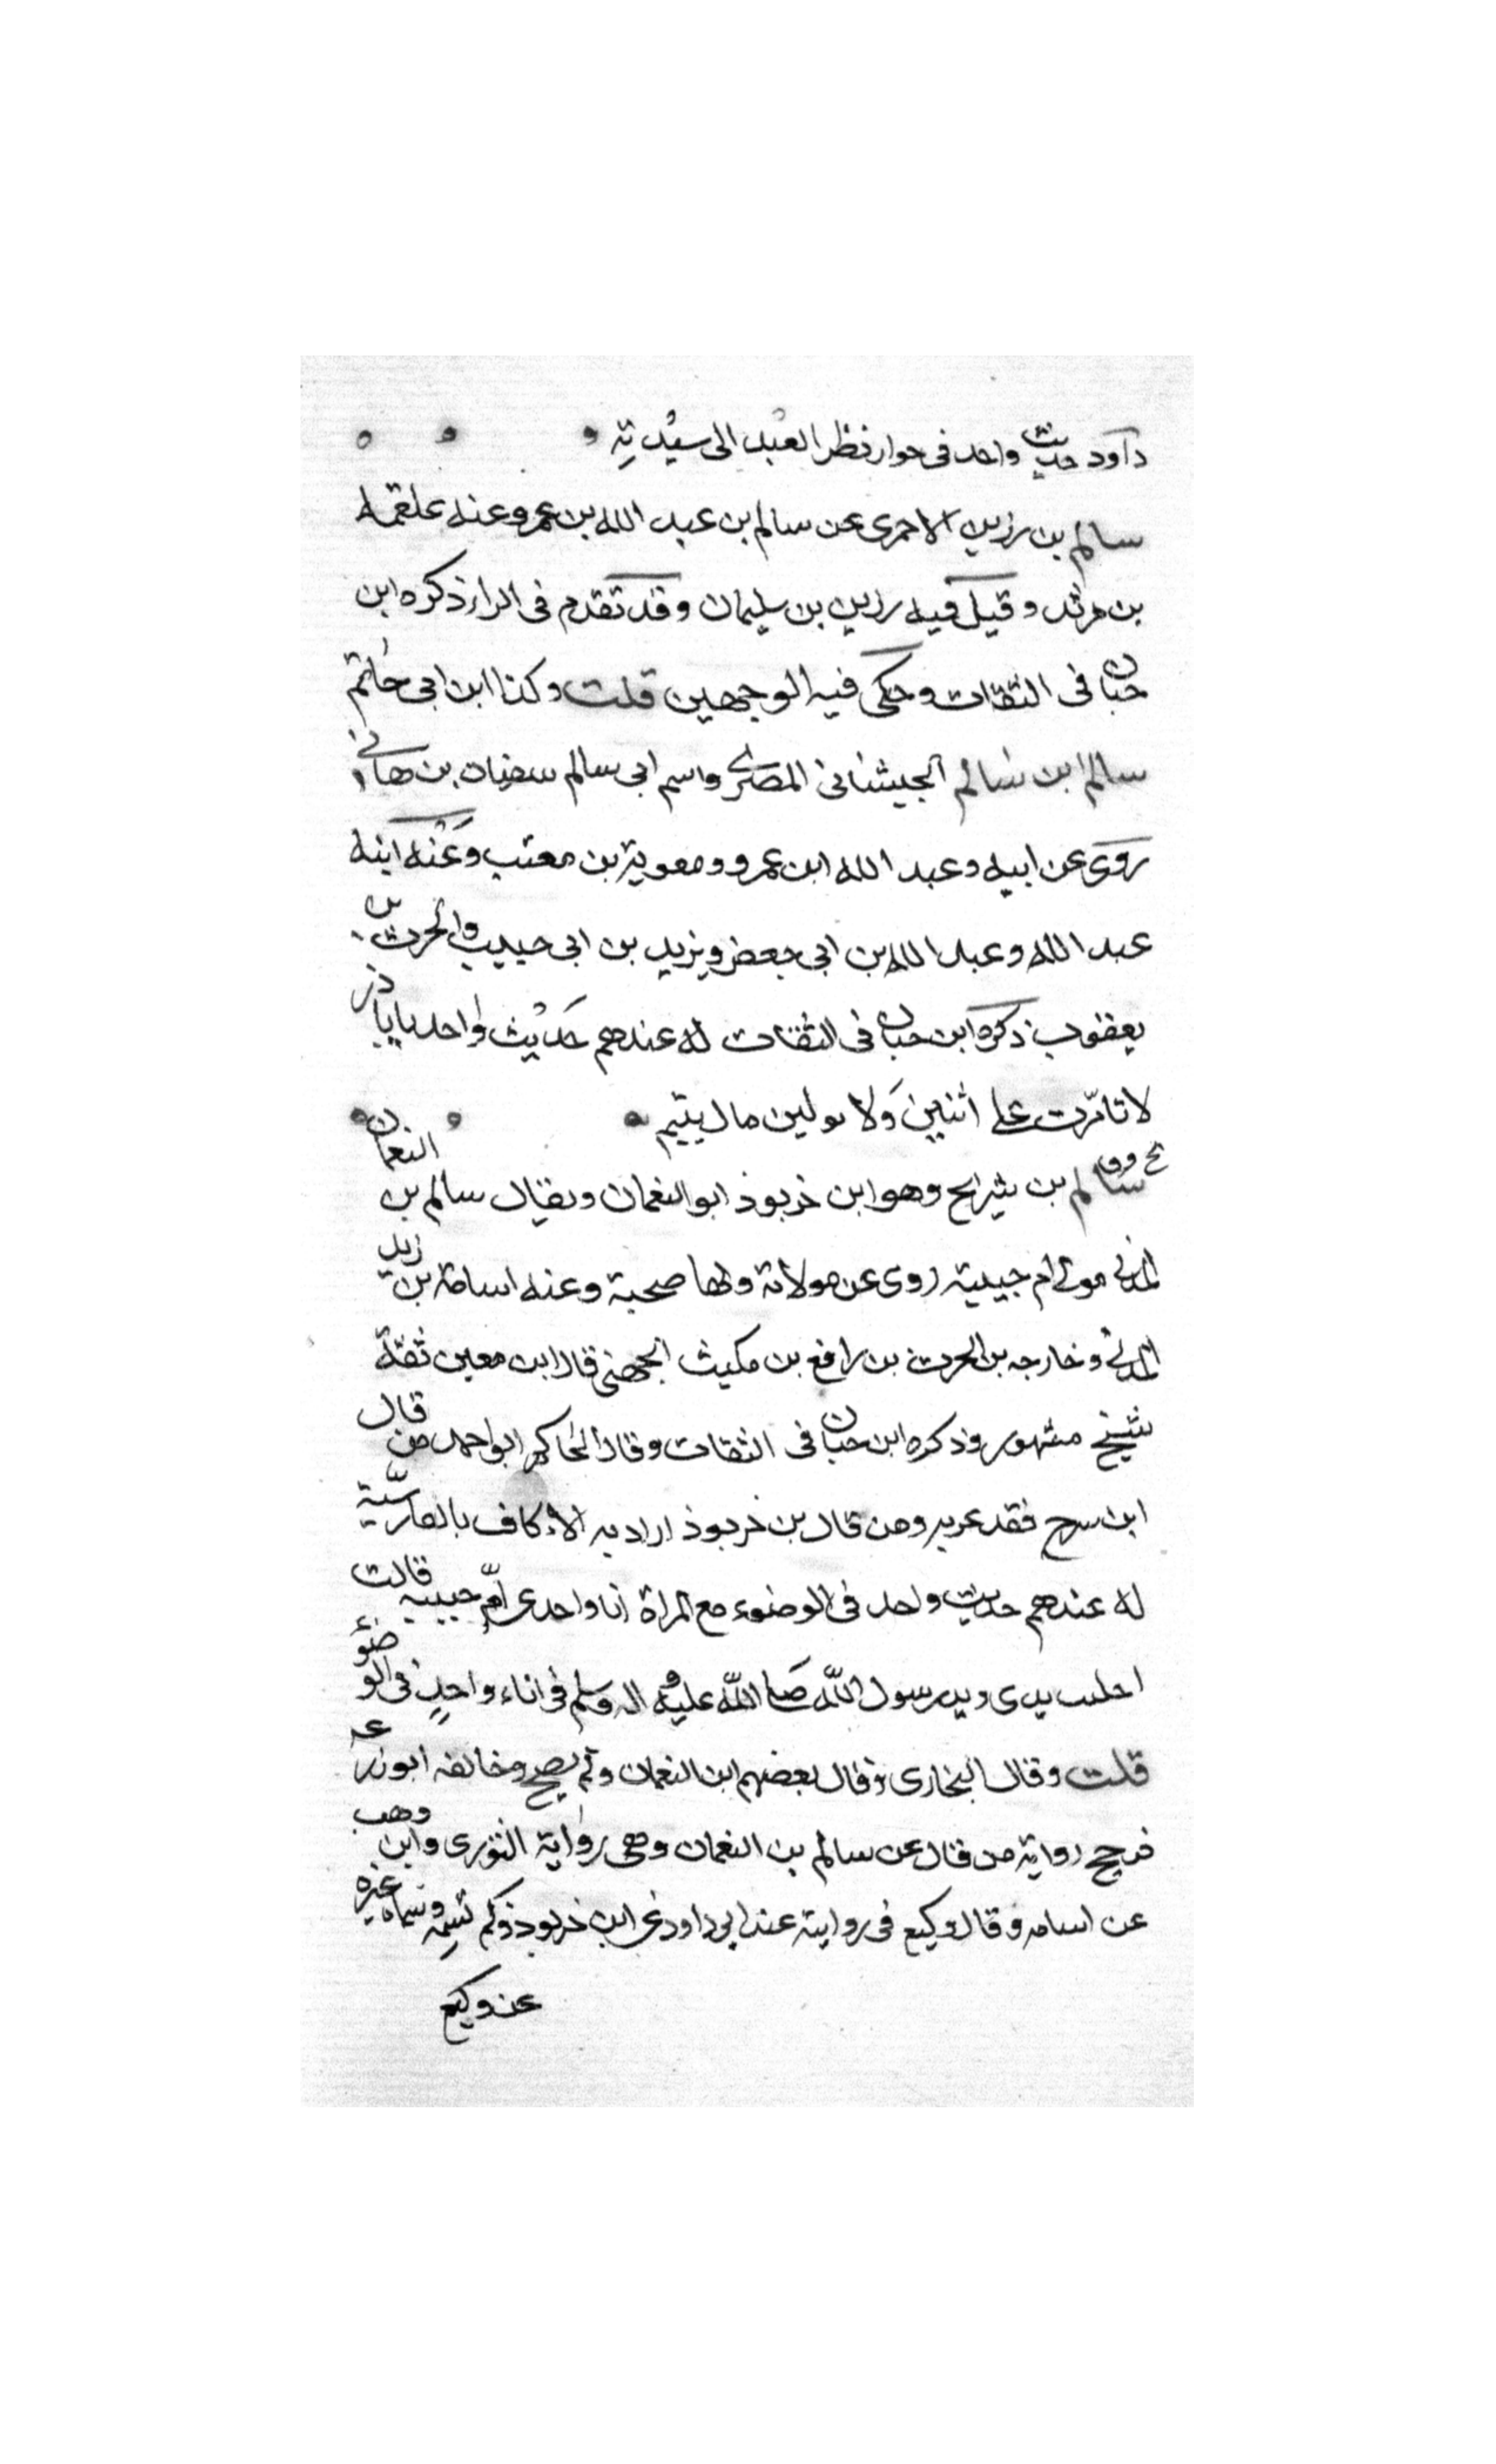 داود حديث واحد في جواز نظر العبد الى سيدته
سالم بن رزين الاحمرى عن سالم بن عبد الله بن عمر وعنه علقمه
بن مرثد وقيل فيه رزين بن سليمان وقد تقدم فى الراء ذكره ابن
حبان فى الثقات وحكى فيه الوجهين قلت وكذا ابن ابى حاتم
سالم ابن سالم الجيشانى المصرى واسم ابى سالم سفيان بن هانئ
روى عن ابيه وعبد الله ابن عمرو ومعوية بن معتب وعنه ابنه
عبد الله وعبد الله بن ابى جعفر ويزيد بن ابى حبيب والحرث بن
يعقوب ذكره ابن حبان فى الثقات له عندهم حديث واحد يابا ذر
لا تامرن على اثنين ولا تولين مال يتيم
بخ د ق سالم بن سرج وهو ابن خربوذ ابو النعمان ويقال سالم بن النعمان
المدنى مولى ام حبيبة روى عن مولاته ولها صحبة وعنه اسامة بن زيد
المدنى وخارجه بن الحرث بن رافع بن مكيث الجهنى قال ابن معين ثقة
شيخ مشهور وذكره ابن حبان فى الثقات وقال الحاكم ابو احمد من قال
ابن سرج فقد عربه ومن قال بن خربوذ اراد به الاكاف بالفارسية
له عندهم حديث واحد فى الوضوء مع المراة انا واحد عن ام حبيبه قالت
اختلفت يدى ويد رسول الله صلى الله عليه واله وسلم فى اناء واحد فى الوضوء
قلت وقال البخارى وقال بعضهم ابن النعمان ولم يصح وخالفه ابو زرعه
فرجح رواية من قال عن سالم بن النعمان وهى رواية الثورى وابن وهب
عن اسامه وقال وكيع فى روايته عند ابى داود عن ابن خربوذ ولم يسمه وسماه غيره
عن وكيع